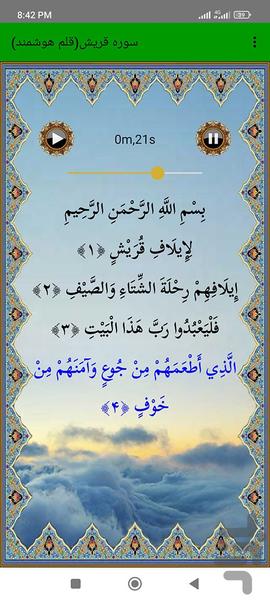 8:42 PM
سوره قریش(قلم هوشمند)
0m,21s
بِسْمِ اللَّهِ الرَّحْمَنِ الرَّحِيمِ
لِإِيلَافِ قُرَيْشٍ ﴿۱﴾
إِيلَافِهِمْ رِحْلَةَ الشِّتَاءِ وَالصَّيْفِ ﴿۲﴾
فَلْيَعْبُدُوا رَبَّ هَذَا الْبَيْتِ ﴿۳﴾
الَّذِي أَطْعَمَهُمْ مِنْ جُوعٍ وَآمَنَهُمْ مِنْ
خَوْفٍ ﴿۴﴾